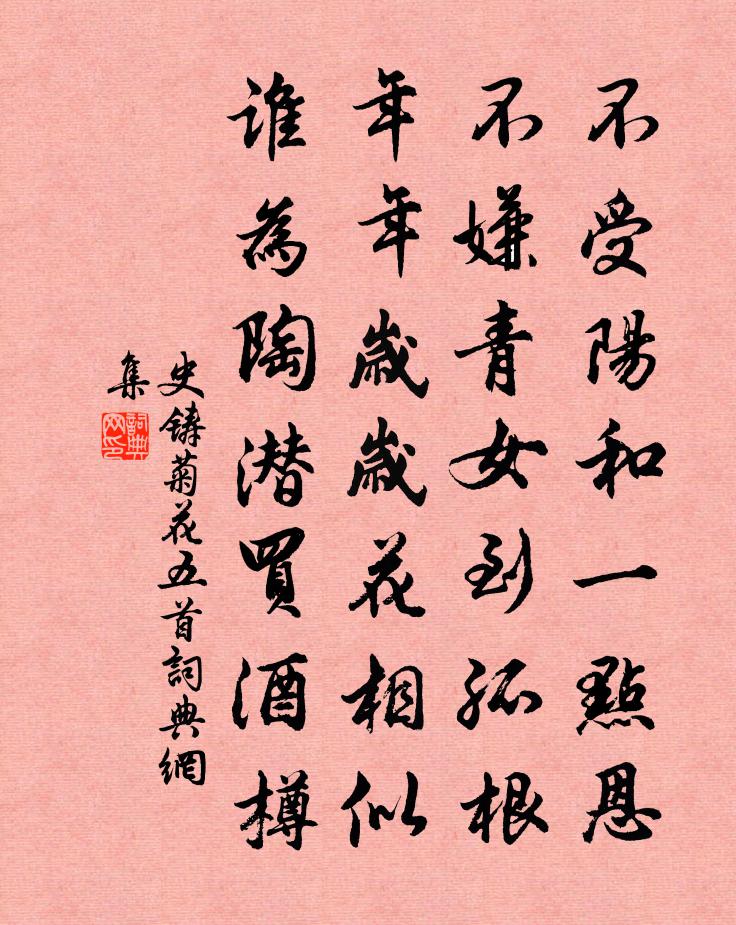 不受陽和一點恩
不嫌青女到孤根
年年歲歲花相似
誰為陶潛買酒樽
史鑄菊花五首詞典網
集
詞典網印